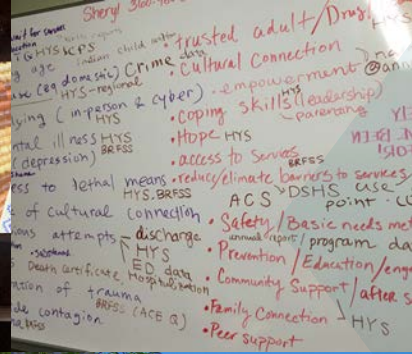 Sheryl
wait for service
HYS CPS
Indian child
age
(eg domestic) Crime data
HYS-regional
ying (in person & cyber)
ntal illness HYS
(depression) BRFSS
ess to lethal means
HYS. BRFSS
of cultural connection
ions attempts - discharge
HYS
ED data
Death Certificate, Hospitalization
ation of trauma
BRFSS (ACE Q)
de contagion
BRFSS
• trusted adult/Drug
HYS
• Cultural Connection
• empowerment
• coping skills (leadership)
HYS
parenting
• Hope HYS
• access to services
BRFSS
• reduce/elimate barriers to services
ACS DSHS use
point
• Safety/Basic needs met
annual report/program da
• Prevention/Education/eng
• Community Support/after s
• Family Connection
HYS
• Peer support